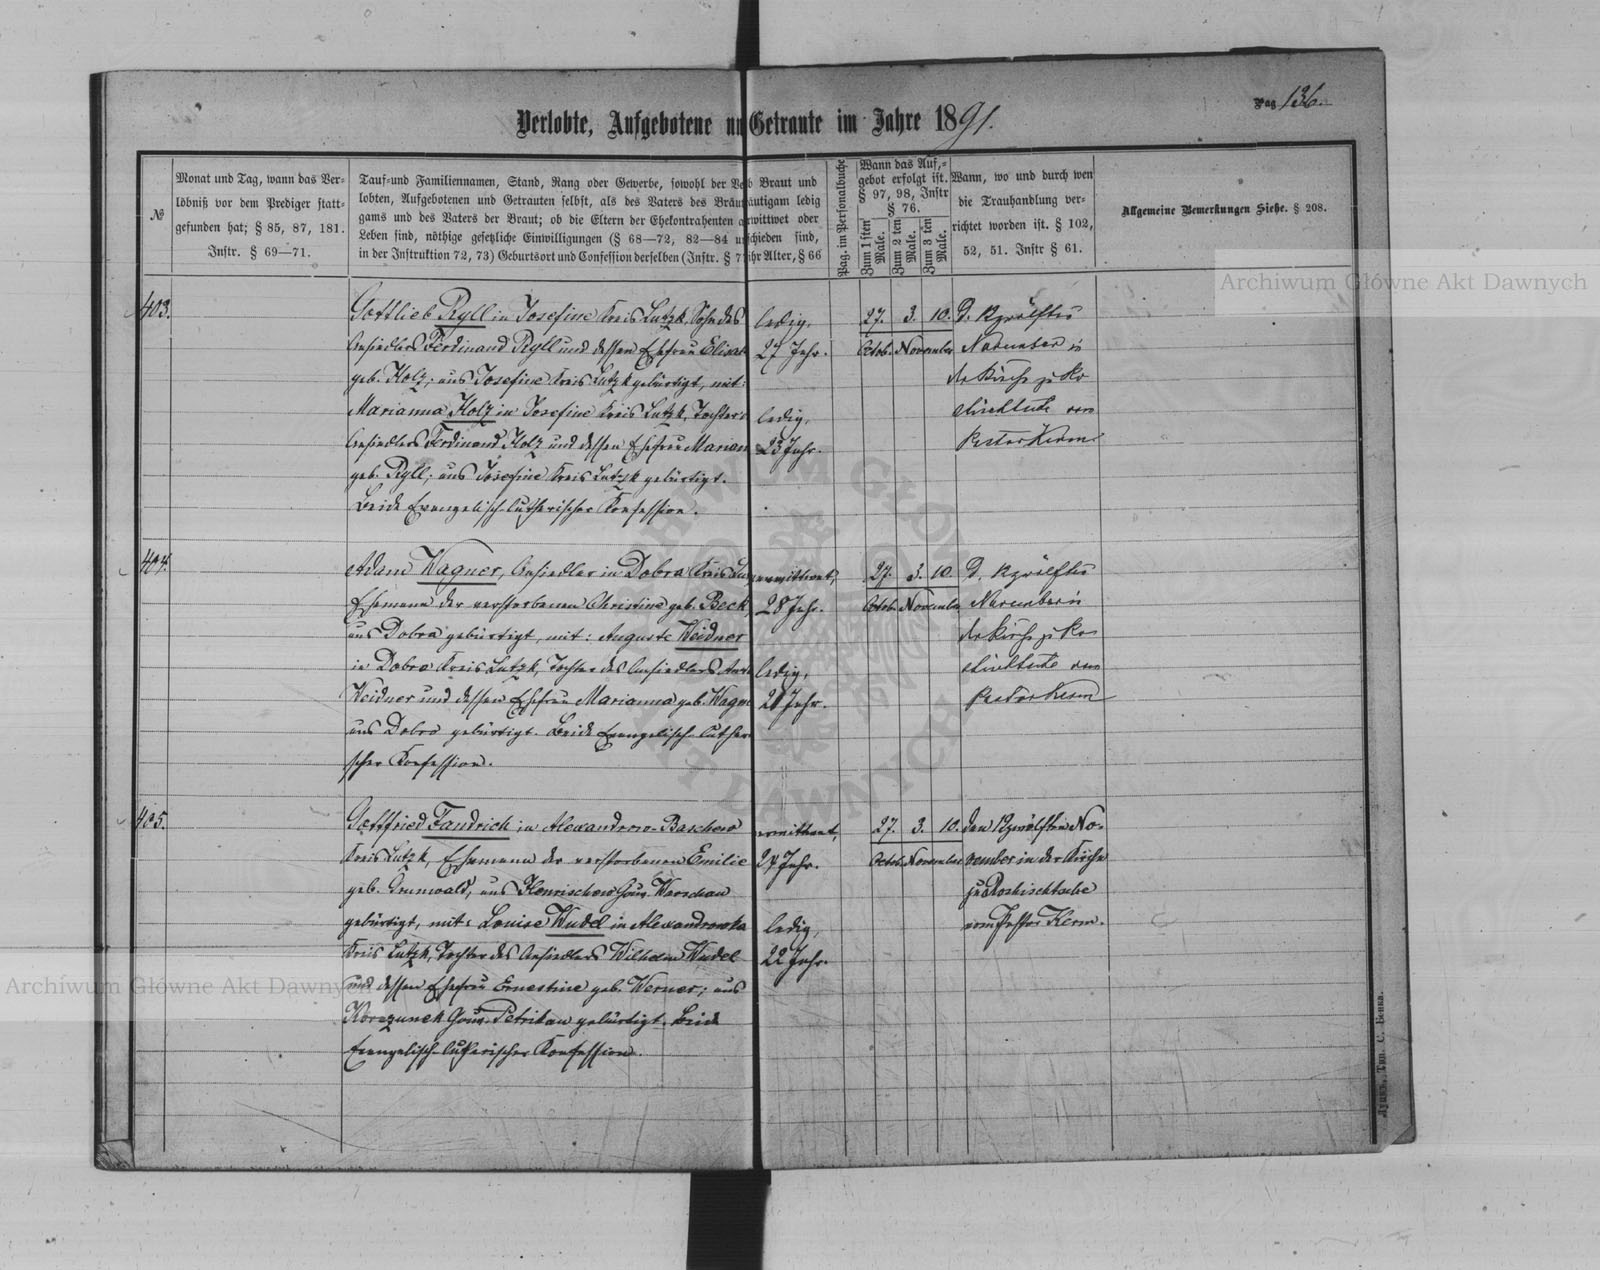 Pag 136.
Verlobte, Aufgebotene un Getraute im Jahre 1891.
№
Monat und Tag, wann das Ver-
löbniß vor dem Prediger statt-
gefunden hat; § 85, 87, 181.
Instr. § 69—71.
Tauf- und Familiennamen, Stand, Rang oder Gewerbe, sowohl der Ve
lobten, Aufgebotenen und Getrauten selbst, als des Vaters des Bräu
gams und des Vaters der Braut; ob die Eltern der Ehekontrahenten
Leben sind, nöthige gesetzliche Einwilligungen (§ 68—72, 82—84 u
in der Instruktion 72, 73) Geburtsort und Confession derselben (Instr. § 7
Braut und
äutigam ledig
rwittwet oder
schieden sind,
ihr Alter, § 66
Pag. im Personalbuche
Wann das Auf-
gebot erfolgt ist.
§ 97, 98, Instr
§ 76.
Zum 1 sten Male.
Zum 2 ten Male.
Zum 3 ten Male.
Wann, wo und durch wen
die Trauhandlung ver-
richtet worden ist. § 102,
52, 51. Instr § 61.
Allgemeine Bemerkungen Siehe. § 208.
403.
Gottlieb Ryll in Josefine Kreis Lutzk, Sohn des
Ansiedlers Ferdinand Ryll und dessen Ehefrau Elisab
geb. Holz; aus Josefine Kreis Lutzk gebürtigt, mit:
Marianna Holz in Josefine Kreis Lutzk, Tochter
Ansiedlers Ferdinand Holz und dessen Ehefrau Marian
geb. Ryll; aus Josefine Kreis Lutzk gebürtigt.
Beide Evangelisch-lutherischer Konfession.
ledig,
27 Jahr.
ledig,
23 Jahr.
27. 3. 10.
Octob. November
d. 12 zwölften
November in
der Kirche zu Ro
schischtsche vom
Pastor Kerm
404.
Adam Wagner, Ansiedler in Dobra Kreis Lu
Ehemann der verstorbenen Christine geb. Beck,
aus Dobra gebürtigt, mit: Auguste Weidner
in Dobra Kreis Lutzk, Tochter des Ansiedlers
Weidner und dessen Ehefrau Marianna geb. Wagn
aus Dobra gebürtigt. Beide Evangelisch-luther
scher Konfession.
verwittwet,
28 Jahr.
ledig,
Jahr.
27. 3. 10.
Octob. November
d. 12 zwölften
November in
der Kirche zu Ro
schischtsche vom
Pastor Kerm
405.
Gottfried Fandrich in Alexandrow-Baschewo
Kreis Lutzk, Ehemann der verstorbenen Emilie
geb. Grunwald, aus Henrischew Gouv. Warschau
gebürtigt, mit: Louise Wudel in Alexandrowka
Kreis Lutzk, Tochter des Ansiedlers Wilhelm Wudel
und dessen Ehefrau Ernestine geb. Werner; aus
Gouv. Petrikau gebürtigt. Beide
Evangelisch-lutherischer Konfession.
verwittwet,
24 Jahr.
ledig,
22 Jahr.
27. 3. 10.
Octob. November
den 12 zwölften No-
vember in der Kirche
zu Roschischtsche
vom Pastor Kerm.
Луцкъ, Тип. С. Бенка.
Archiwum Główne Akt Dawnych
Archiwum Główne Akt Dawnych